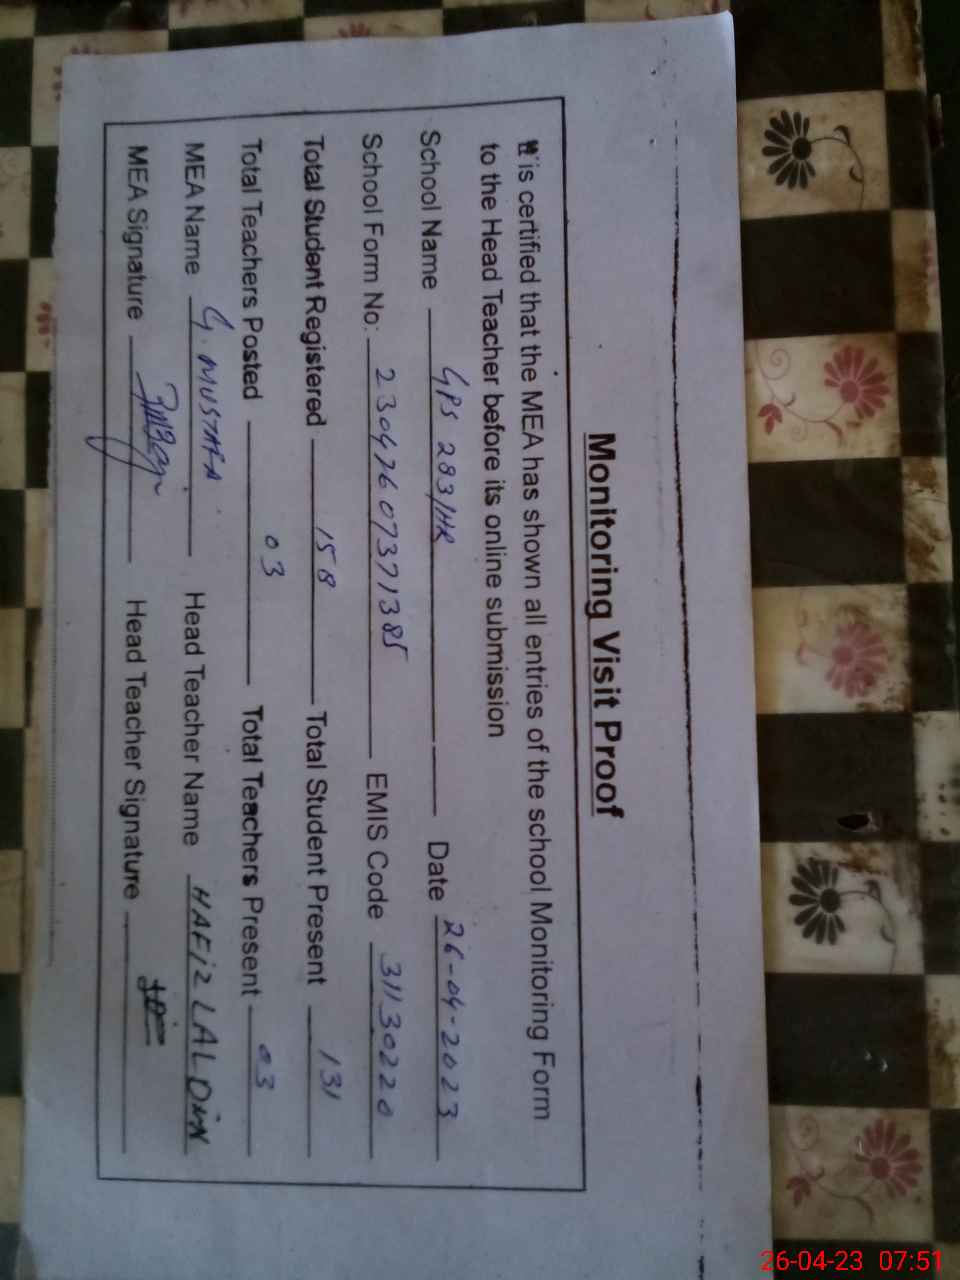 Monitoring Visit Proof
It is certified that the MEA has shown all entries of the school Monitoring Form
to the Head Teacher before its online submission
School Name GPS 283/HR Date 26-04-2023
School Form No: 23042607371385 EMIS Code 31130220
Total Student Registered 158 Total Student Present 131
Total Teachers Posted 03 Total Teachers Present 03
MEA Name G. MUSTAFA Head Teacher Name HAFiZ LAL DiN
MEA Signature Head Teacher Signature
26-04-23 07:51